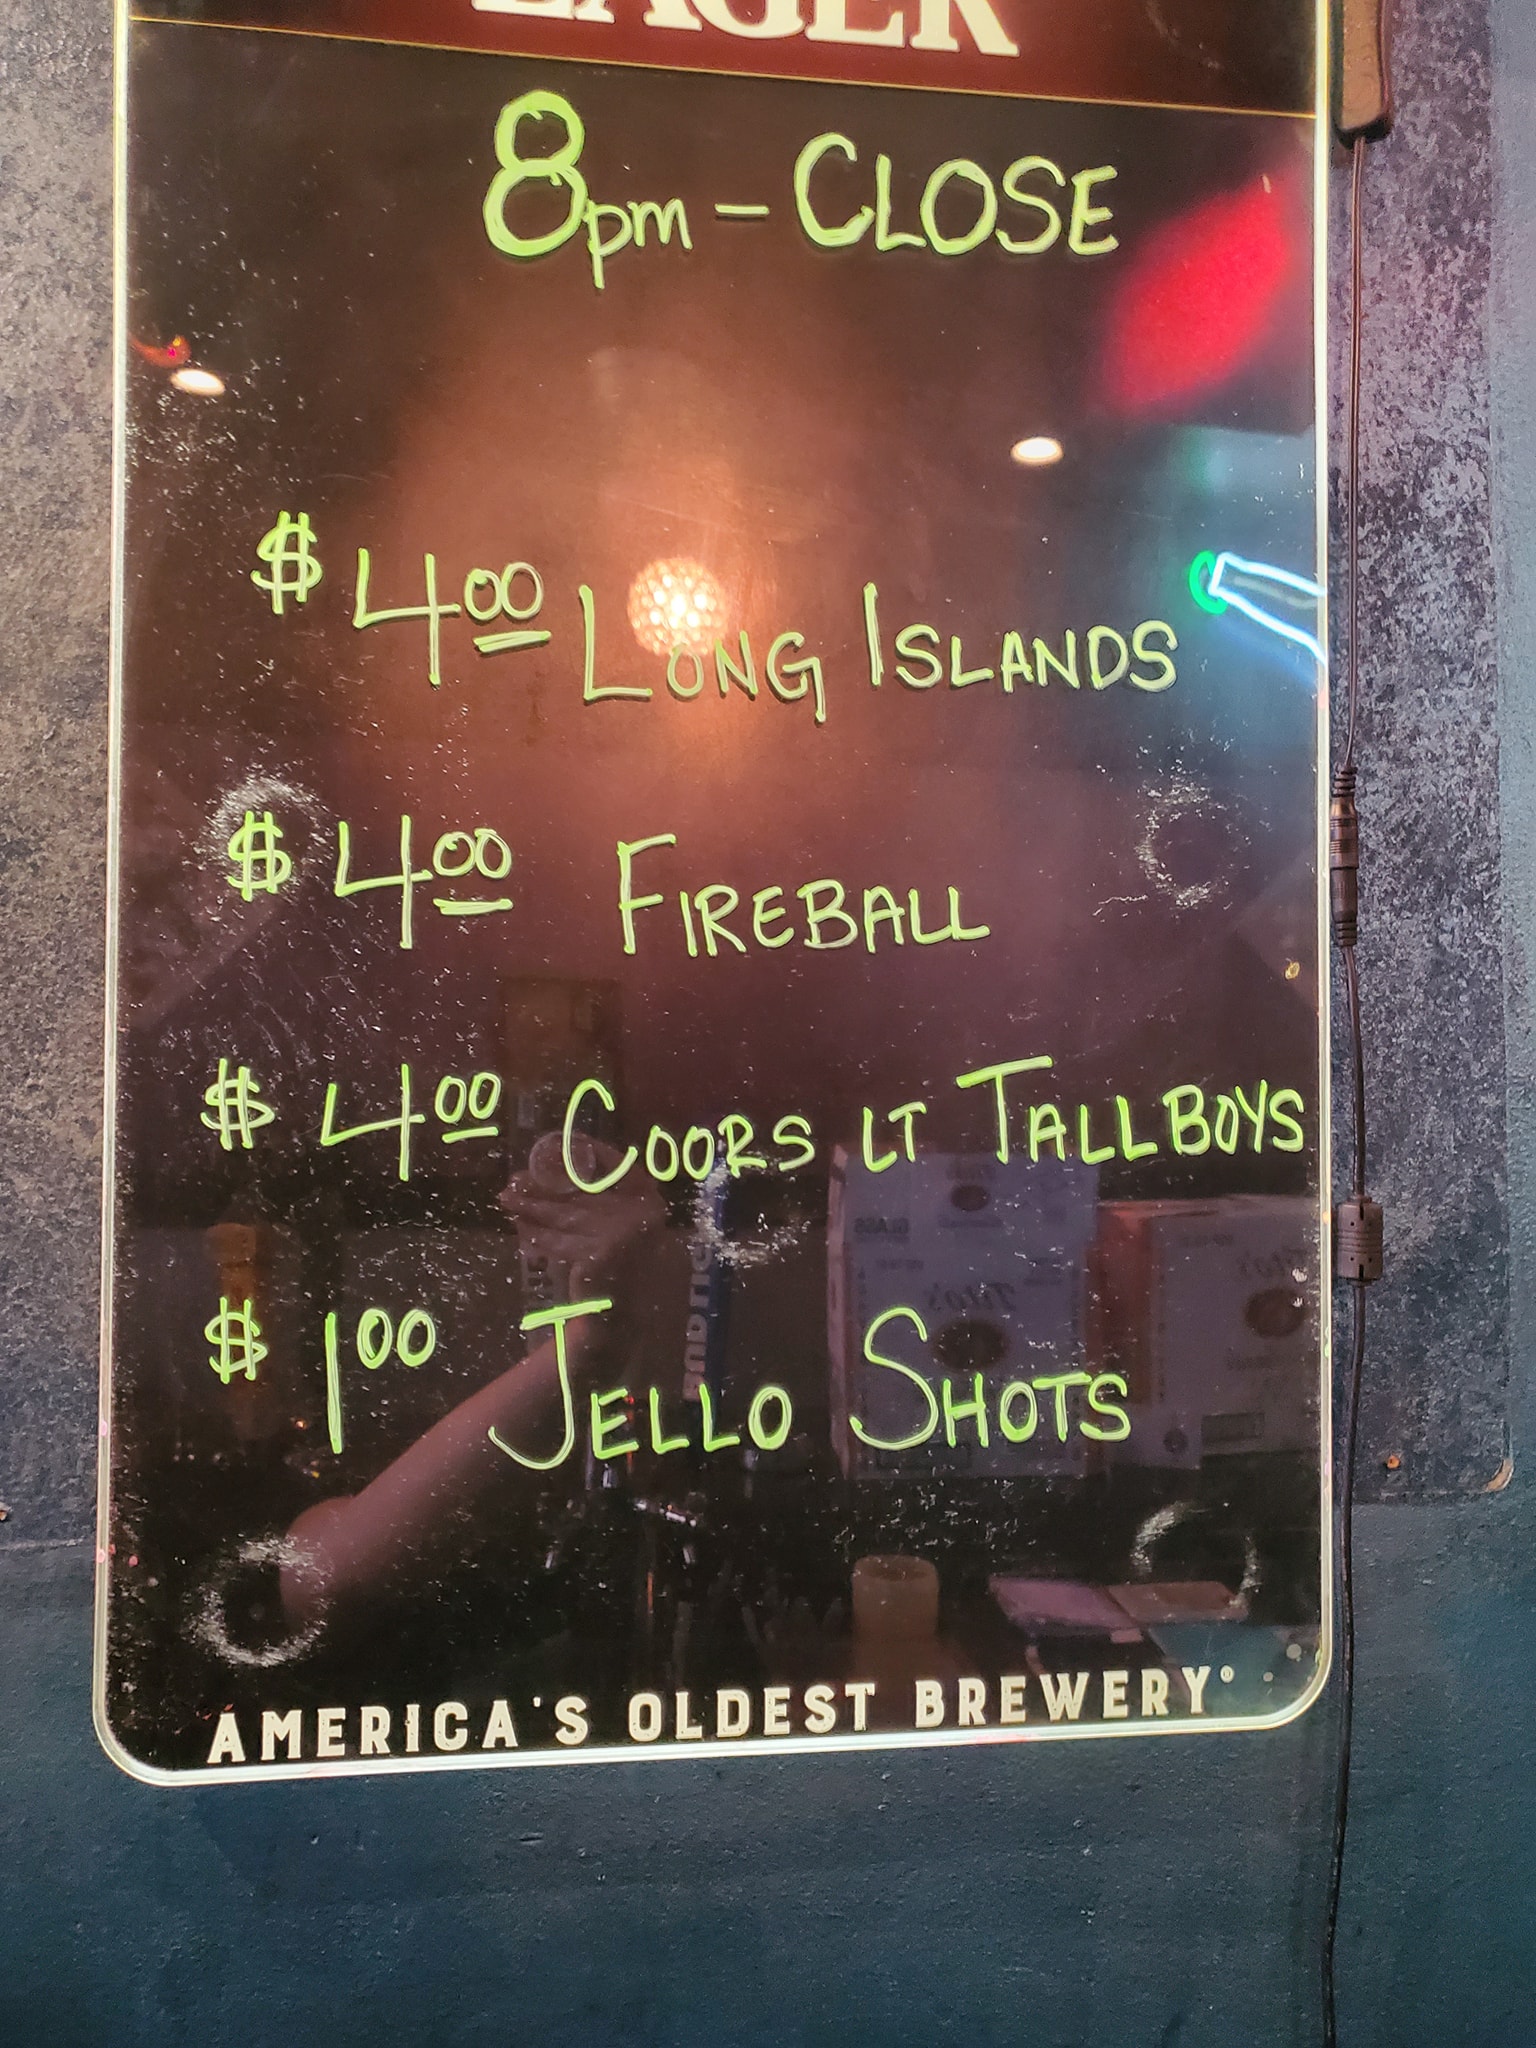 LAGER
8pm - CLOSE
$4.00 LONG ISLANDS
$4.00 FIREBALL
$4.00 COORS LT TALLBOYS
$1.00 JELLO SHOTS
AMERICA'S OLDEST BREWERY®